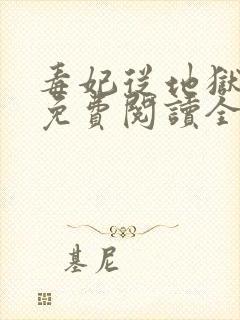 毒妃從地獄
免費閱讀全
基尼